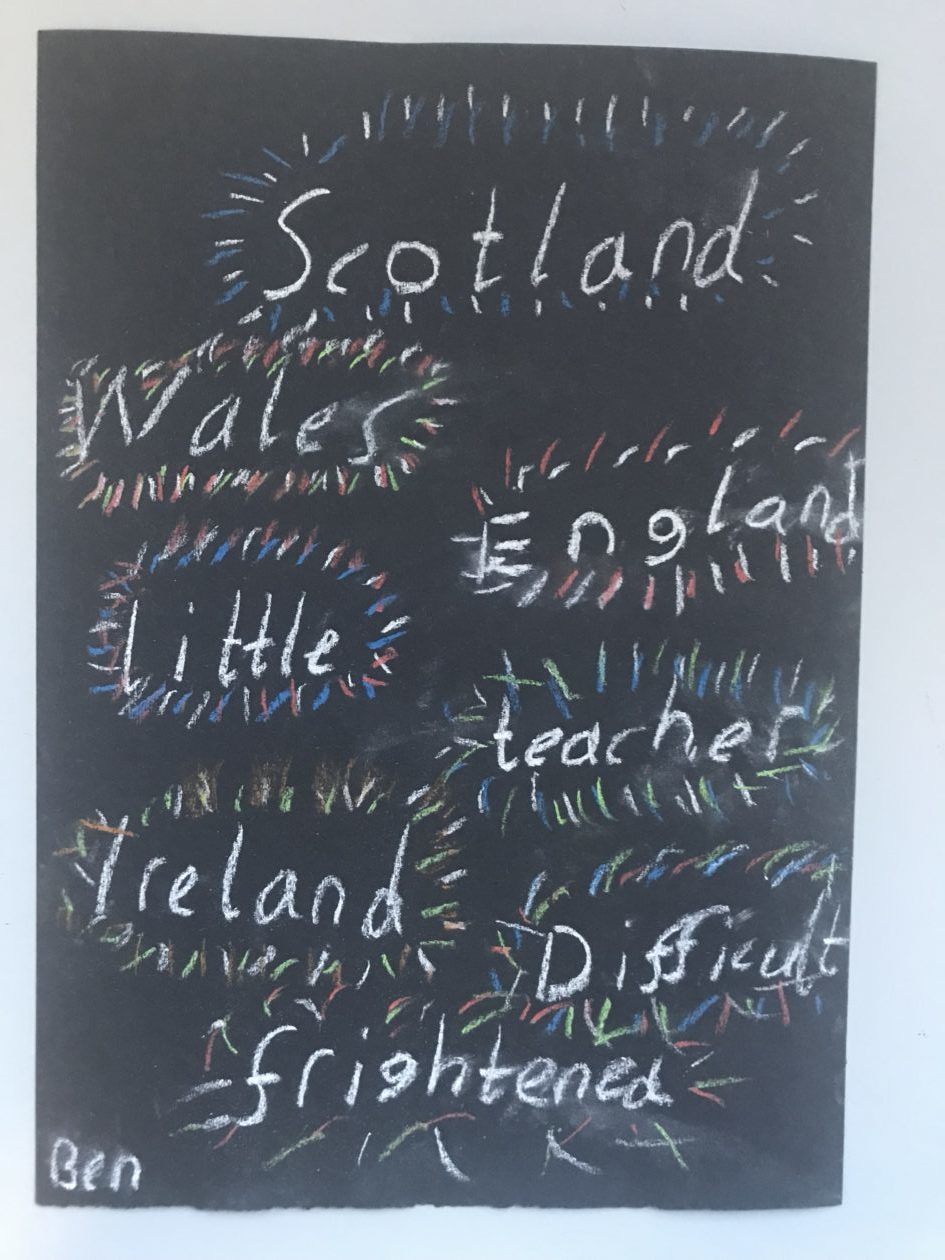 Scotland
Wales
England
Little
teacher
Ireland
Difficult
frightened
Ben